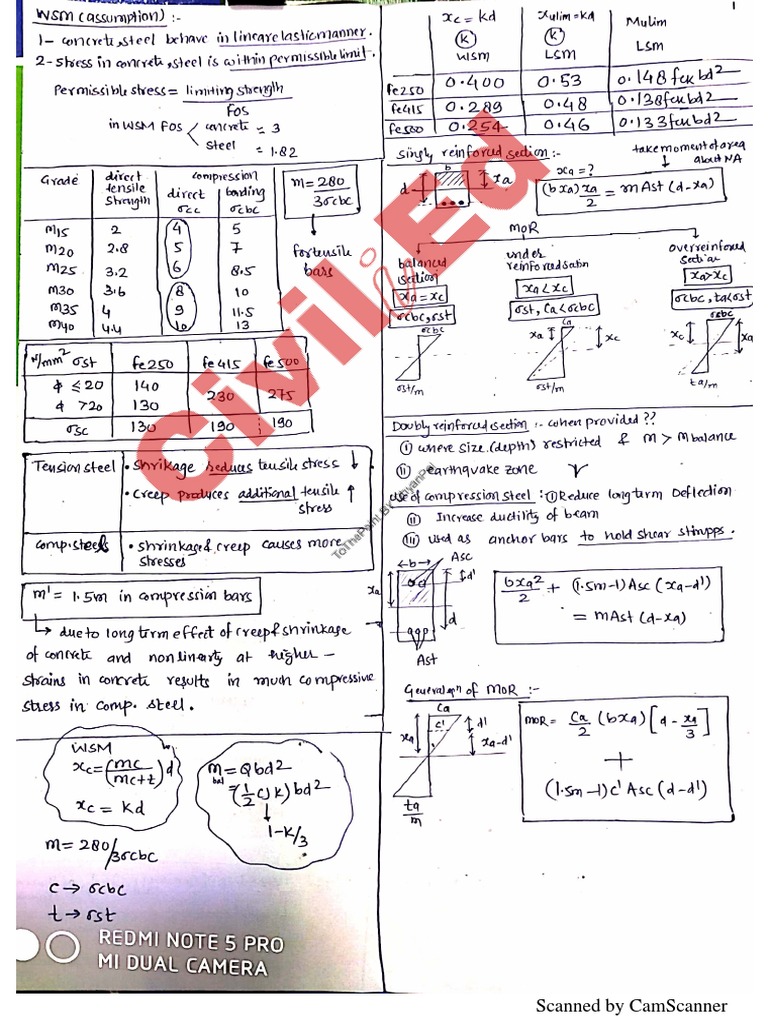 WSM (assumption) :-
1- concrete, steel behave in linear elastic manner.
2- stress in concrete, steel is within permissible limit.
Permissible stress = limiting strength / FOS
in WSM FOS < concrete = 3
steel = 1.82
Grade direct tensile strength compression
direct σcc banding σcbc
M15 2 4 5
M20 2.8 5 7
M25 3.2 6 8.5
M30 3.6 8 10
M35 4 9 11.5
M40 4.4 10 13
m = 280 / 3σcbc
for tensile
bars
N/mm² σst fe250 fe415 fe500
ϕ ≤20 140 230 275
ϕ >20 130
σsc 130 190 190
Tension steel • shrikage reduces tensile stress ↓
• creep produces additional tensile stress ↑
comp. steel • shrinkage & creep causes more
stresses
m' = 1.5m in compression bars
↳ due to long term effect of creep & shrinkage
of concrete and non linearty at higher -
strains in concrete results in much compressive
stress in comp. steel.
WSM
xc = (mc / mc+t) d
xc = Kd
M bal = Qbd2
= (1/2 c j k) bd2
↓
1-K/3
m = 280/3σcbc
c → σcbc
t → σst
REDMI NOTE 5 PRO
MI DUAL CAMERA
1
xc = kd xulim = kd Mulim
(k) (k) LSM
WSM LSM
fe250 0.400 0.53 0.148 fck bd2
fe415 0.289 0.48 0.138 fck bd2
fe500 0.254 0.46 0.133 fck bd2
Singly reinforced section :-
take moment of area
about NA
b
d
xa
xa = ?
(b xa) xa/2 = m Ast (d - xa)
MOR
balanced
section
xa = xc
σcbc, σst
σcbc
σst/m
under
reinforced
xa < xc
σst, Ca < σcbc
Ca
xa xc
σst/m
over reinforced
section
xa > xc
σcbc, ta < σst
σcbc
xc xa
ta/m
Doubly reinforced section :- when provided ??
(i) where size (depth) restricted & M > M balance
(ii) earthquake zone
use of compression steel : (i) Reduce long term Deflection
(ii) Increase ductility of beam
(iii) used as anchor bars to hold shear stirupps.
b Asc
xa d' d
Ast
bxa²/2 + (1.5m-1) Asc (xa-d')
= m Ast (d-xa)
General eqn of MOR :-
Ca
c' d'
xa xa-d'
ta/m
MOR = Ca/2 (bxa) [d - xa/3]
+
(1.5m-1) c' Asc (d-d')
Civil Ed
Scanned by CamScanner